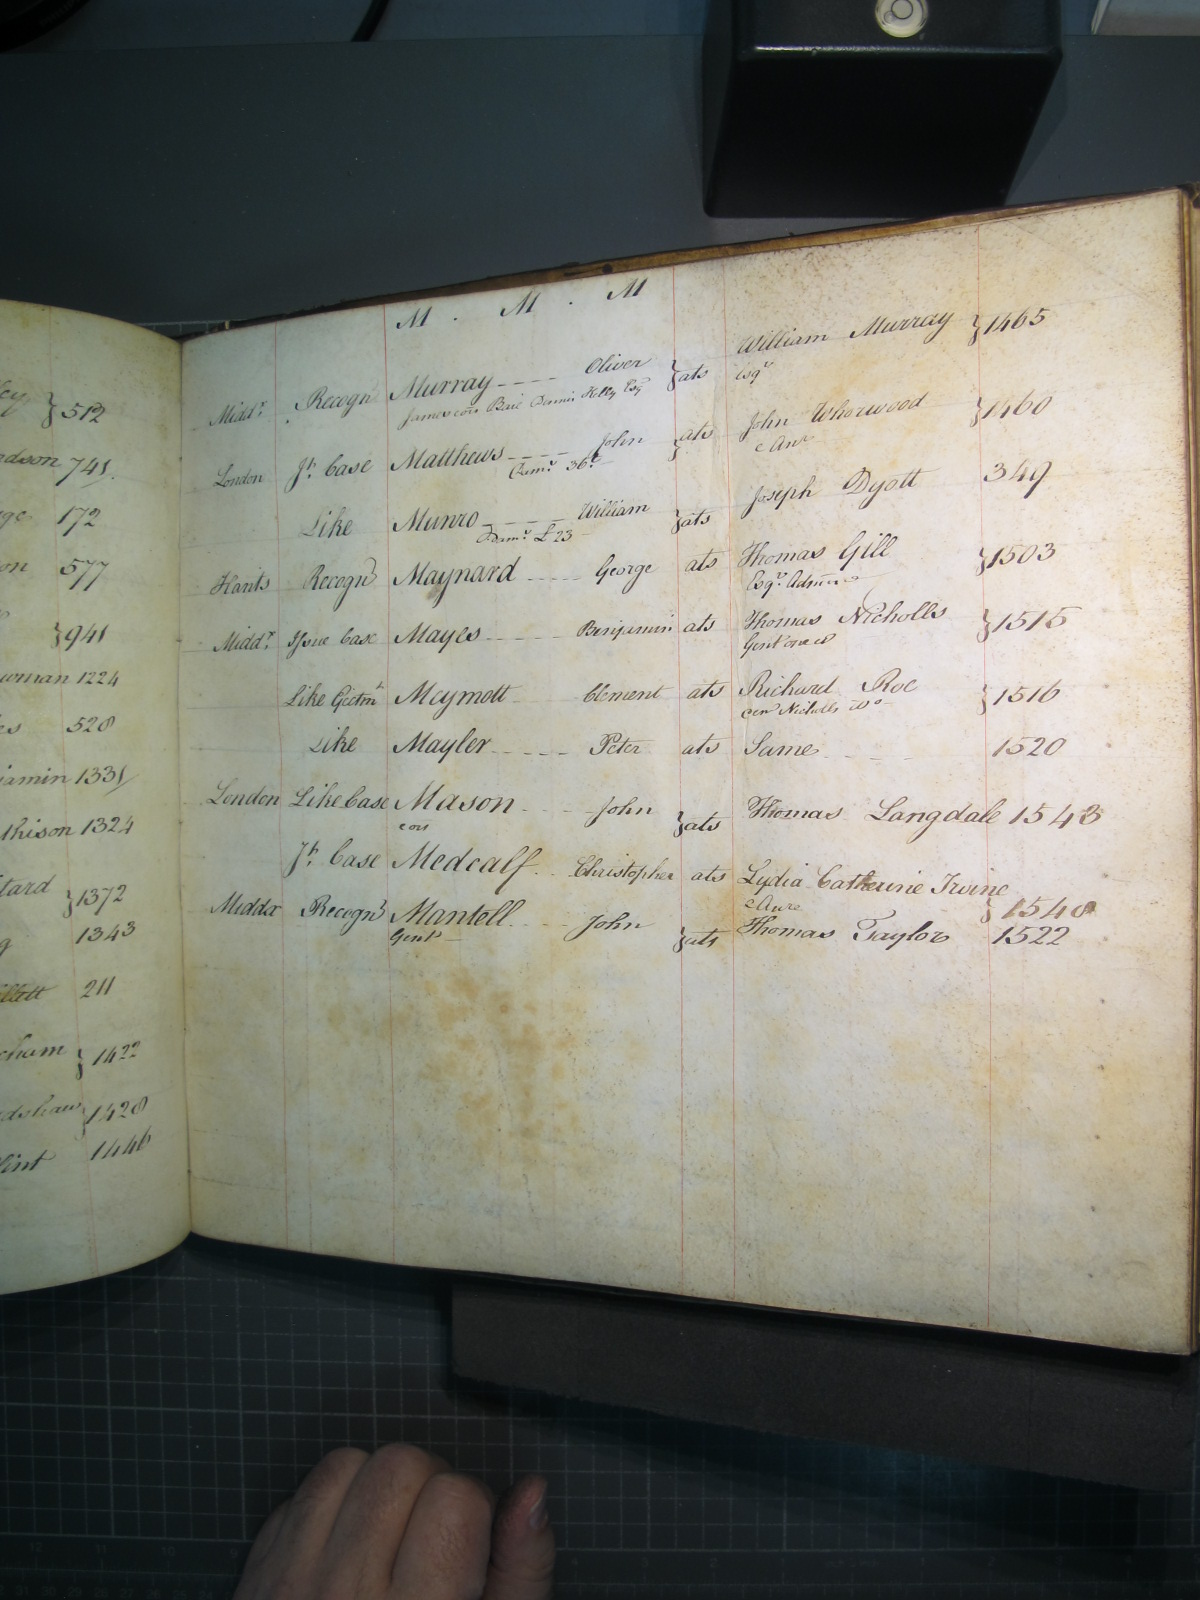 ey } 512
dson 741
ge 172
on 577
} 941
wman 1224
es 528
jamin 1331
thison 1324
tard } 1372
g 1343
llett 211
cham } 1422
dshaw } 1428
lint 1446
M . M . M
Midd.r Recogn.ce Murray ---- Oliver } ats William Murray } 1465
James con Bail Dennis Kelly Esq Esq.r
London J.t Case Matthews ---- John } ats John Whorwood 1460
Dam.s 36.£ & anr
Like Munro ---- William } ats Joseph Dyott 349
Dam.s £23
Hants Recogn.ce Maynard ---- George ats Thomas Gill } 1503
Esq.r Admor
Midd.r Issue Case Mayes ---- Benjamin ats Thomas Nicholls } 1515
Gent one &c
Like Ejectm.t Meymott Clement ats Richard Roe } 1516
Nicholls
Like Mayler ---- Peter ats Same ---- 1520
London Like Case Mason --- John } ats Thomas Langdale 1543
J.t Case Medcalf .. Christopher ats Lydia Catherine Irvine
& anr } 1548
Middx Recogn.ce Mantell ---- John } ats Thomas Taylor 1522
Gent